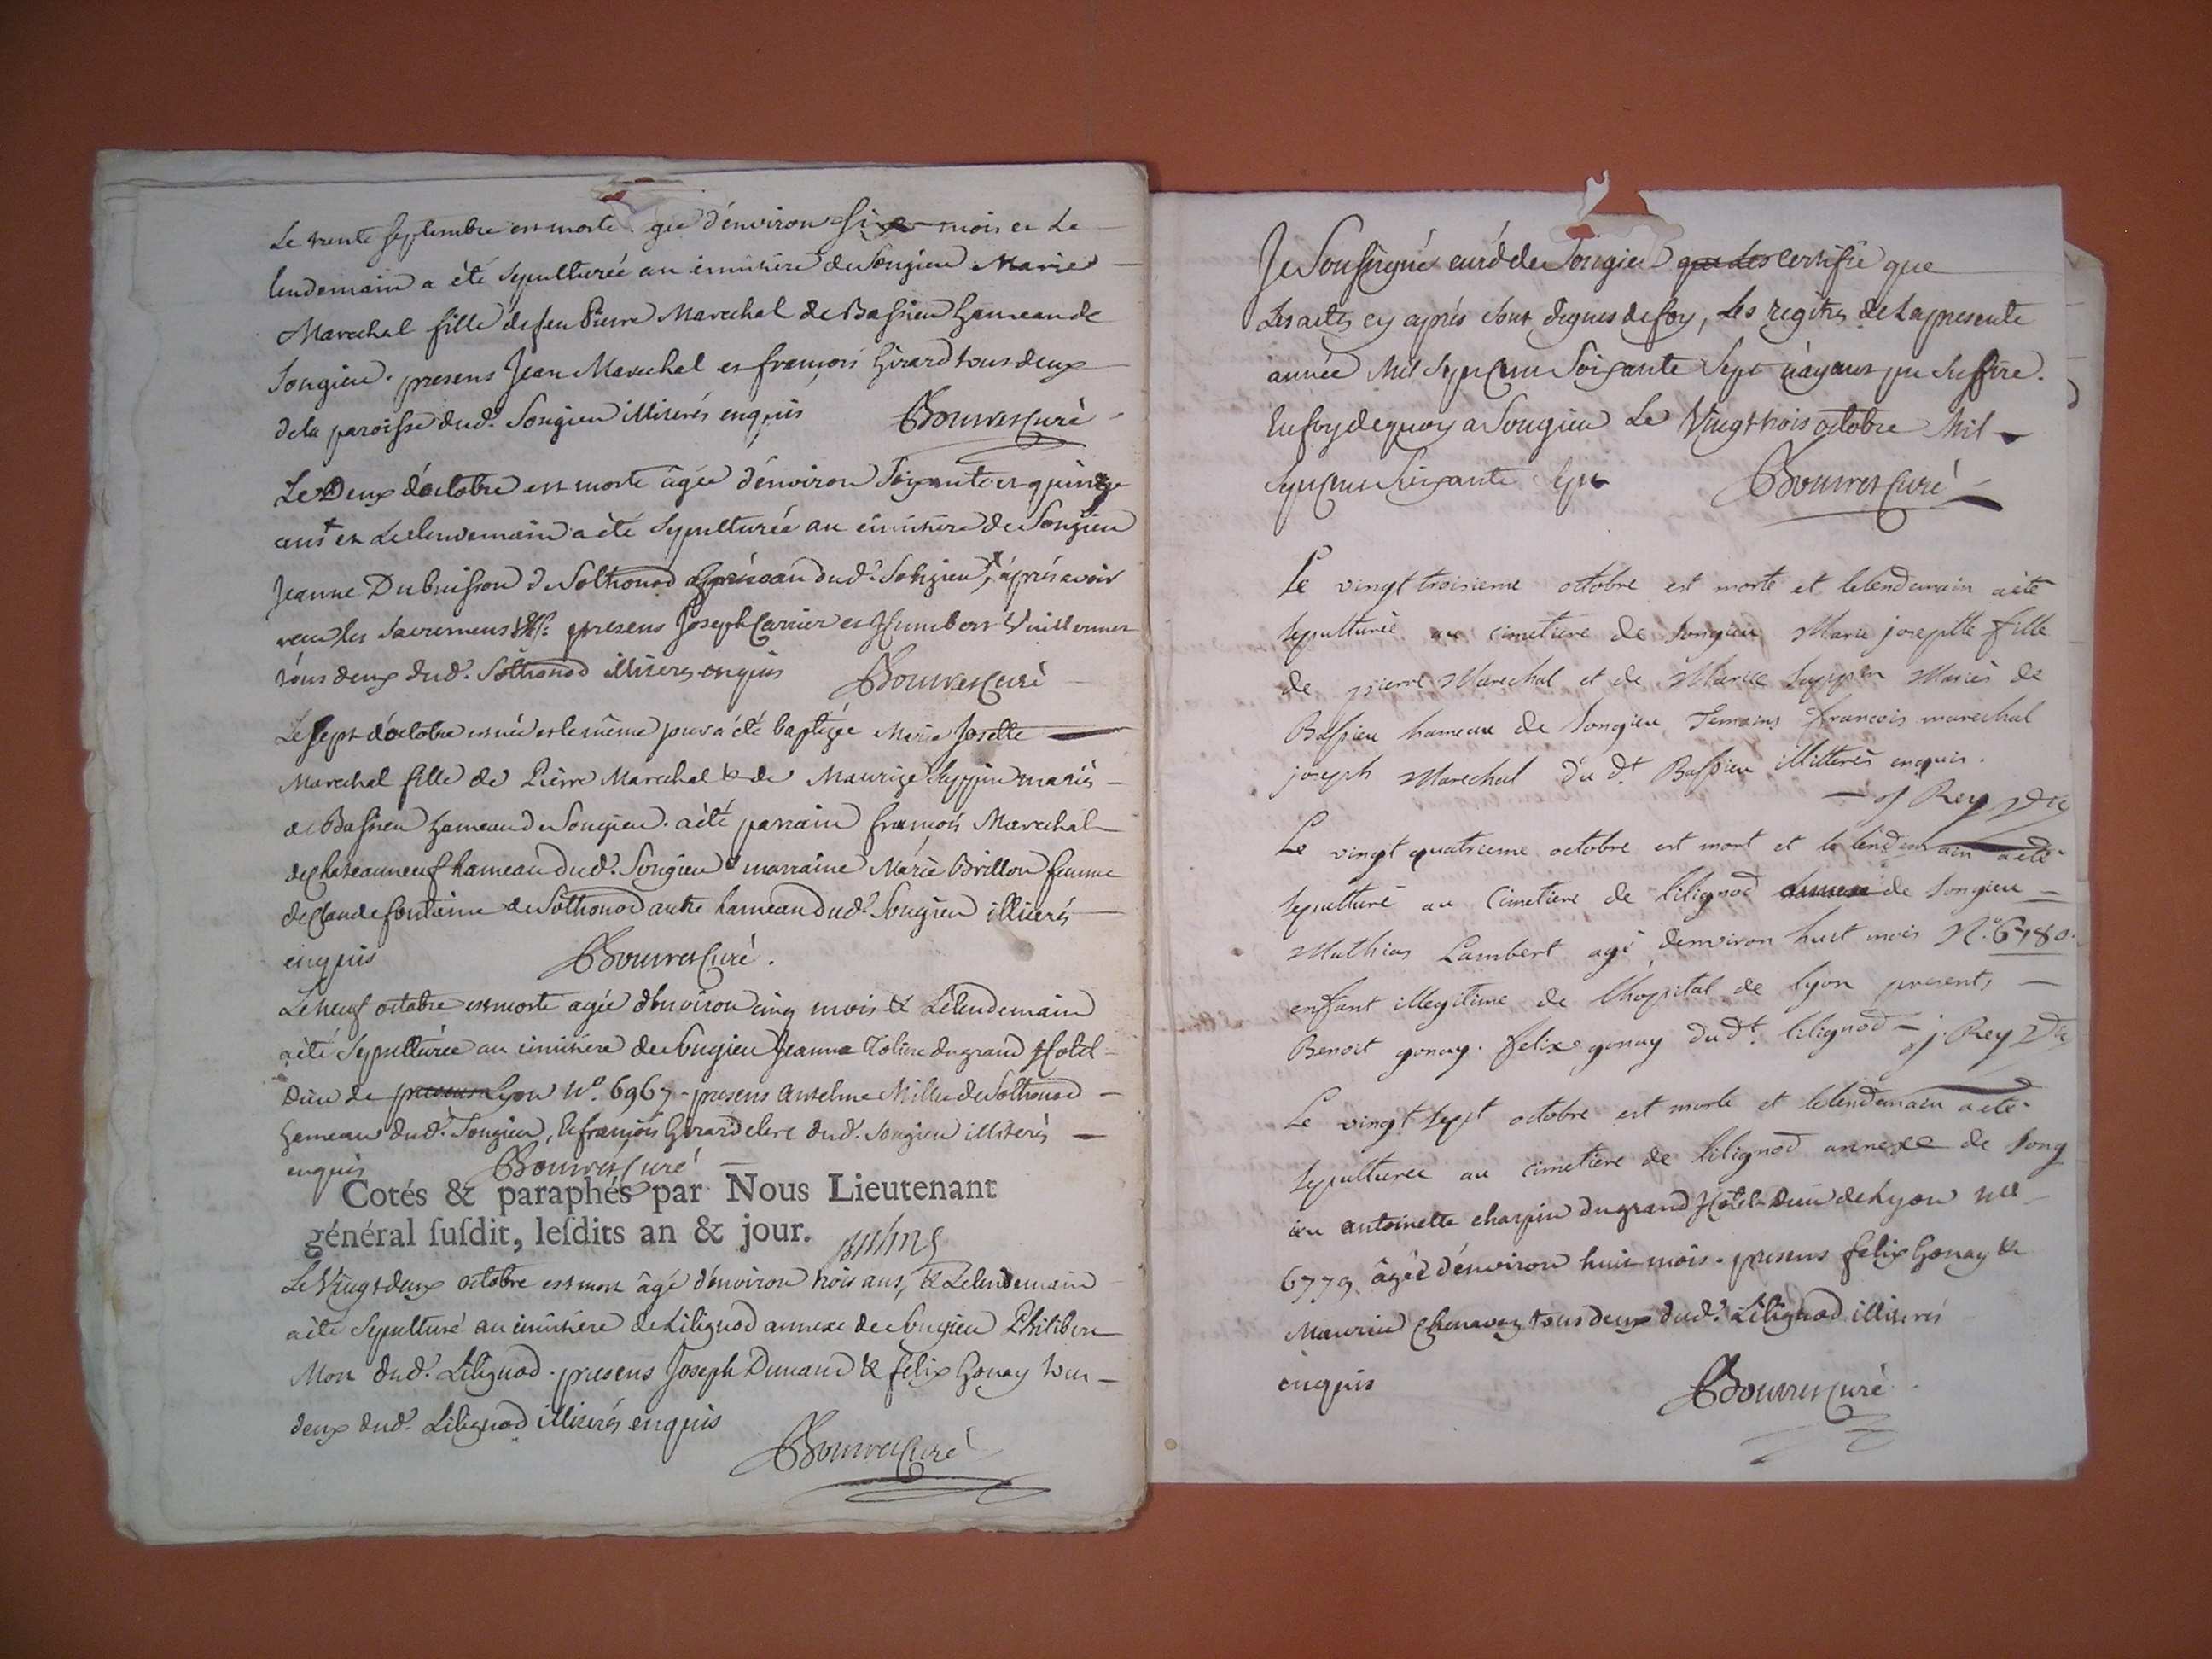 Le trente septembre est morte gée d'énviron six mois et Le
lendemain a été sepulturée au cimitiere de Songieu Marie
Marechal fille de feu Pierre Marechal de Bassieu hameau de
Songieu. presens Jean Marechal et françois Girard tous deux
de la paroisse dud. Songieu illiterés enquis Bouvet Curé
Le Deux d'octobre est morte âgée d'énviron soixante et quinze
ans et Le lendemain a été sepulturée au cimitiere de Songieu
Jeanne Dubuisson de Sothonod hameau dud. Songieu, aprés avoir
receu les sacremens presens Joseph Carrier et Humbert Vuillermet
tous deux dud. Sothonod illiteres enquis Bouvet Curé
Le sept d'octobre est née et le même jour a été baptizée Marie Josette
Marechal fille de Pierre Marechal & de Maurize Suppin mariés
de Bassieu hameau de Songieu. a été parrain françois Marechal
de Chateauneuf hameau dud. Songieu & marraine Marie Brillon femme
de Claude fontaine de Sothonod autre hameau dud. Songieu illiterés
enquis Bouvet Curé.
Le neuf octobre est morte agée d'environ cinq mois & Le lendemain
a été sepulturée au cimitiere de Songieu Jeanne du grand Hotel
Dieu de Lyon No. 6967. presens Anselme Millet de Sothonod
hameau dud. Songieu, & françois Girard clerc dud. Songieu illiterés
enquis Bouvet Curé
Cotés & paraphés par Nous Lieutenant
général ſuſdit, leſdits an & jour.
Le Vingt deux octobre est mort âgé d'énviron trois ans, & Le lendemain
a été sepulturé au cimitiere de Lilignod annexe de Songieu Philibert
Mon dud. Lilignod. presens Joseph Dunand & felix Gonay tous
deux dud. Lilignod illiterés enquis
Bouvet Curé
Je Soussigné curé de Songieu certifie que
Les actes cy aprés sont dignes de foy, Les regitres de La presente
année Mil Sept Cent Soixante Sept n'ayant pu suffire.
En foy de quoy a Songieu Le Vingt trois octobre Mil
Sept Cent Soixante Sept Bouvet Curé
Le vingt troisieme octobre est morte et lelendemain aété
sepulturée au cimetiere de Songieu Marie josephte fille
de pierre Marechal et de Marice suppin Mariés de
Bassieu hameau de Songieu Temoins francois marechal
joseph Marechal du dt Bassieu illitterés enquis.
j Rey
Le vingt quatrieme octobre est mort et le lendemain aété
sepulturé au Cimetiere de lilignod de Songieu
Mathias Lambert agé d'environ huit mois N.o 6780.
enfant illegitime de l'hopital de lyon presents
Benoit gonay. felix gonay dudt. lilignod j. Rey
Le vingt sept octobre est morte et lelendemain aété
sepulturée au cimetiere de lilignod annexe de Song
ieu antoinette charpin du grand Hotel Dieu de Lyon
6779 âgée d'énviron huit mois. presens felix Gonay &
Maurice Chenavaz tous deux dud. Lilignod illiterés
enquis
Bouvet Curé